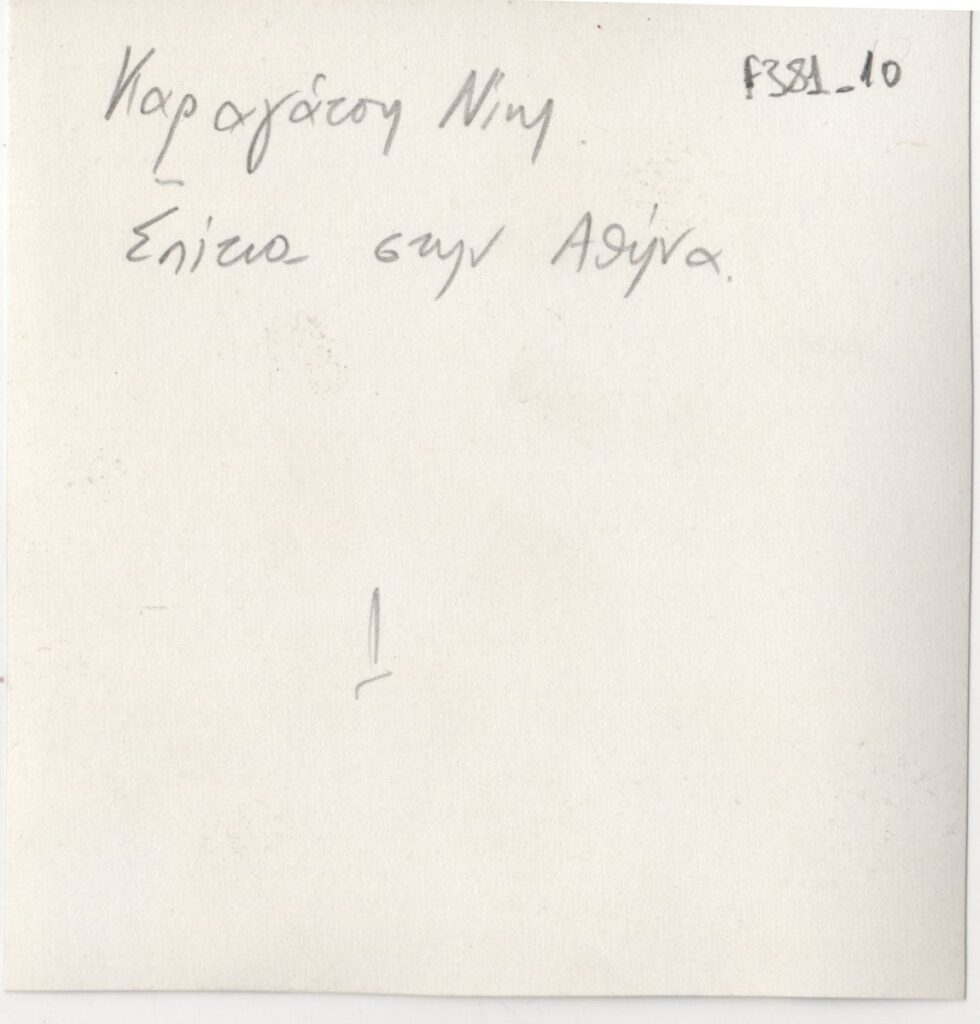 Καραγάτση Νίκη F381_10
Σπίτια στην Αθήνα.